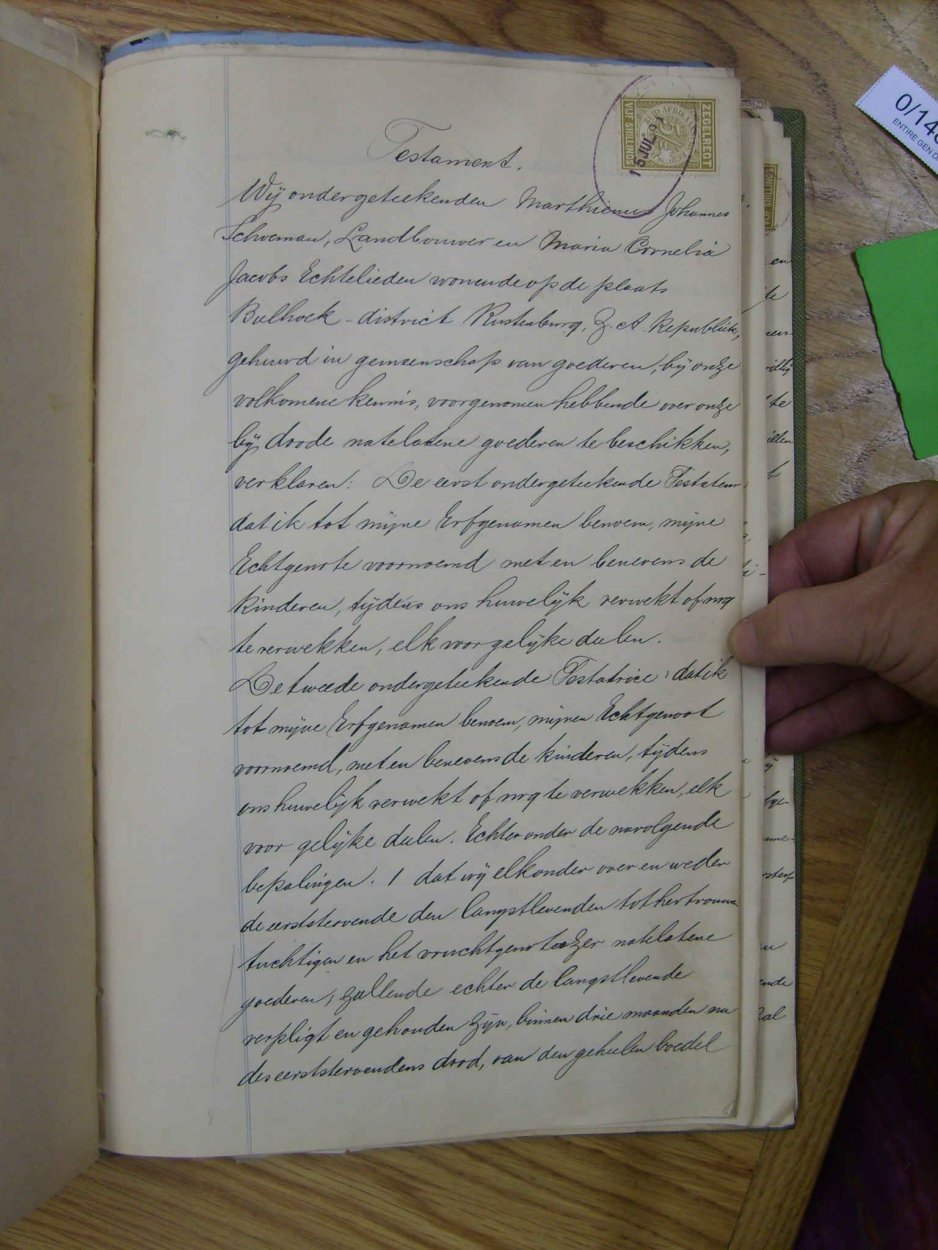 ZEGELRECHT
VIJF SHILLINGS
15 JUL
0/14
ENTIRE GEN.D
Testament.
Wij ondergeteekenden Marthienus Johannes
Schoeman, Landbouwer en Maria Cornelia
Jacobs Echtelieden wonende op de plaats
Bulhoek - district Rustenburg, Z. A. Republiek,
gehuwd in gemeenschap van goederen, bij onze
volkomene kennis, voorgenomen hebbende over onze
bij doode natelatene goederen te beschikken,
verklaren: De eerst ondergeteekende Testateur
dat ik tot mijne Erfgenamen benoem, mijne
Echtgenote voornoemd met en benevens de
kinderen, tijdens ons huwelijk verwekt of nog
te verwekken, elk voor gelijke deelen.
De tweede ondergeteekende Testatrice: dat ik
tot mijne Erfgenamen benoem, mijnen Echtgenoot
voornoemd, met en benevens de kinderen, tijdens
ons huwelijk verwekt of nog te verwekken, elk
voor gelijke deelen. Echter onder de navolgende
bepalingen. 1 dat wij elkander over en weder
de eerststervende den langstlevenden tot hertrouwen
tuchtigen en het vruchtgenot onzer natelatene
goederen; zullende echter de langstlevende
verpligt en gehouden zijn, binnen drie maanden na
des eerststervendens dood, van den geheelen boedel